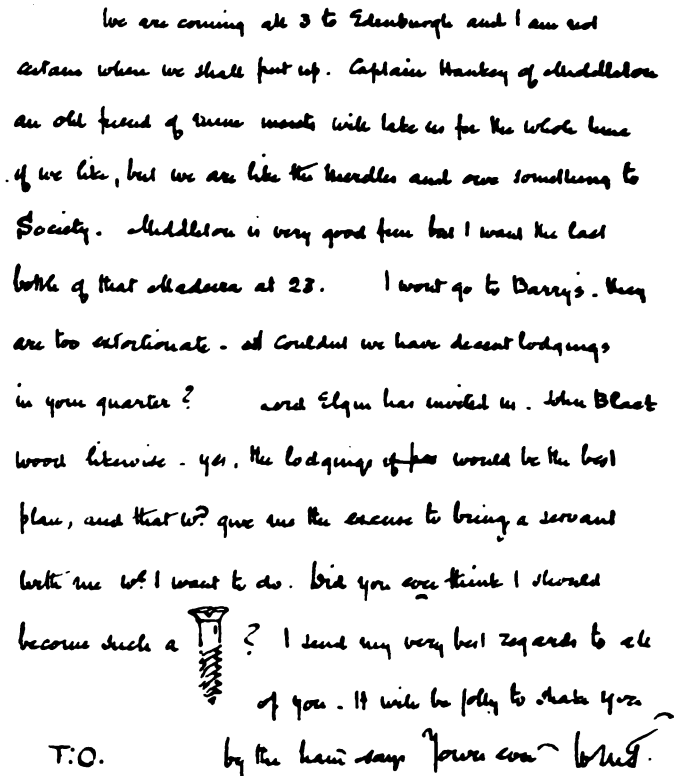 We are coming all 3 to Edenburgh and I am not
certain where we shall put up. Captain Hankey of Middleton
an old friend of mine wants will take us for the whole time
if we like, but we are like the Merdles and owe something to
Society. Middleton is very good fun but I want the last
bottle of that Madeira at 23. I wont go to Barry's. they
are too extortionate - Couldnt we have decent lodgings
in your quarter? Lord Elgin has invited us. John Black
wood likewise - yes, the lodgings would be the best
plan, and that wd. give me the excuse to bring a servant
with me wh. I want to do. Did you ever think I should
become such a ? I send my very best regards to all
of you. It will be jolly to shake you
T.O. by the han says Yours ever